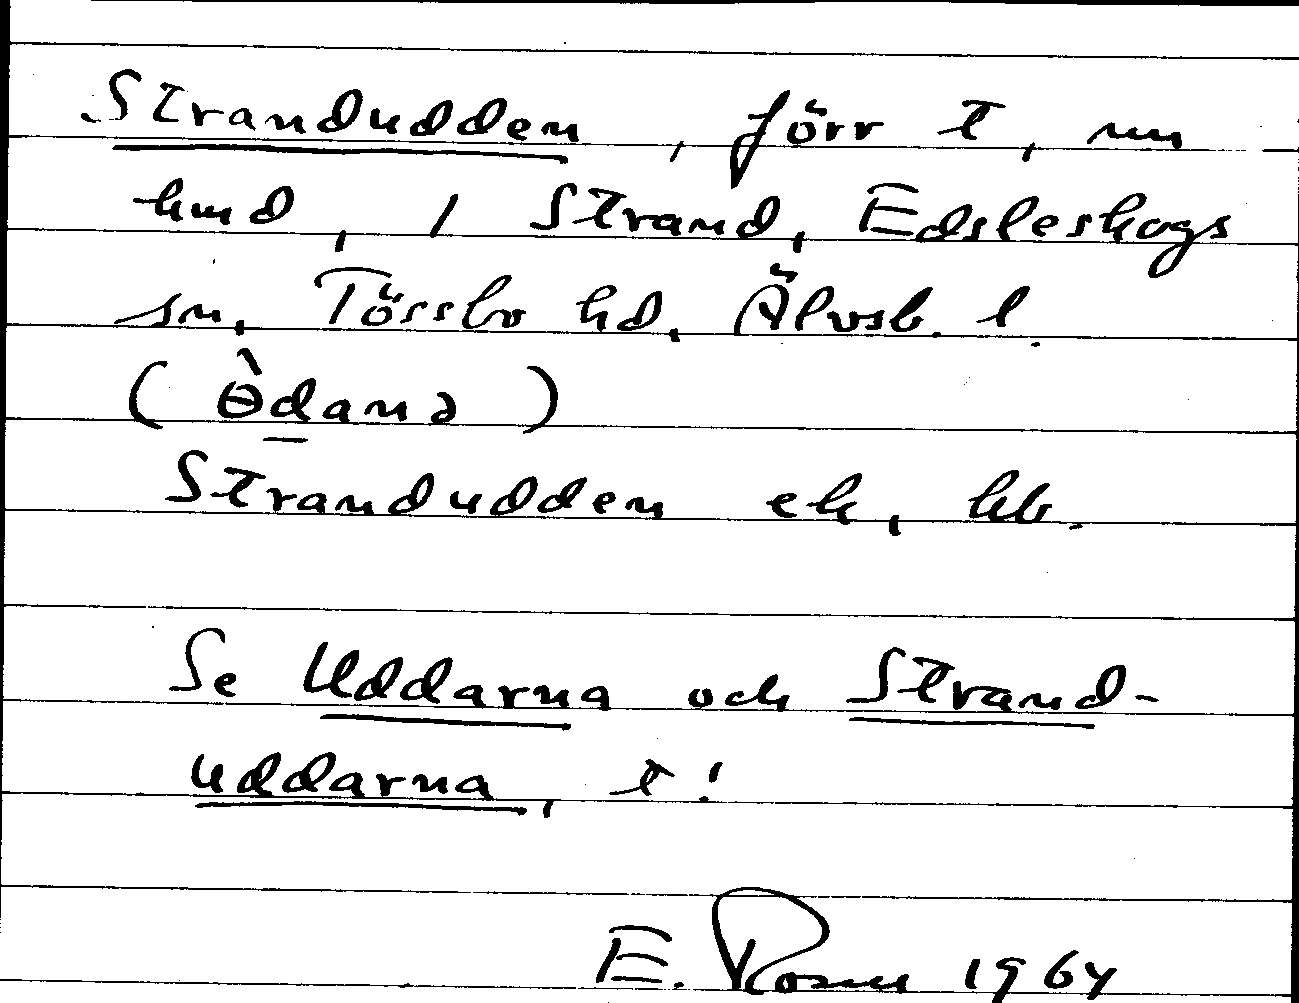 Strandudden, förr t, nu
hmd, / Strand, Edsleskogs
sn, Tössbo hd, Älvsb. l.
(Ɵ̀danə)
Strandudden ek, hb.
Se Uddarna och Strand-
uddarna, t!
E. Rosell 1964